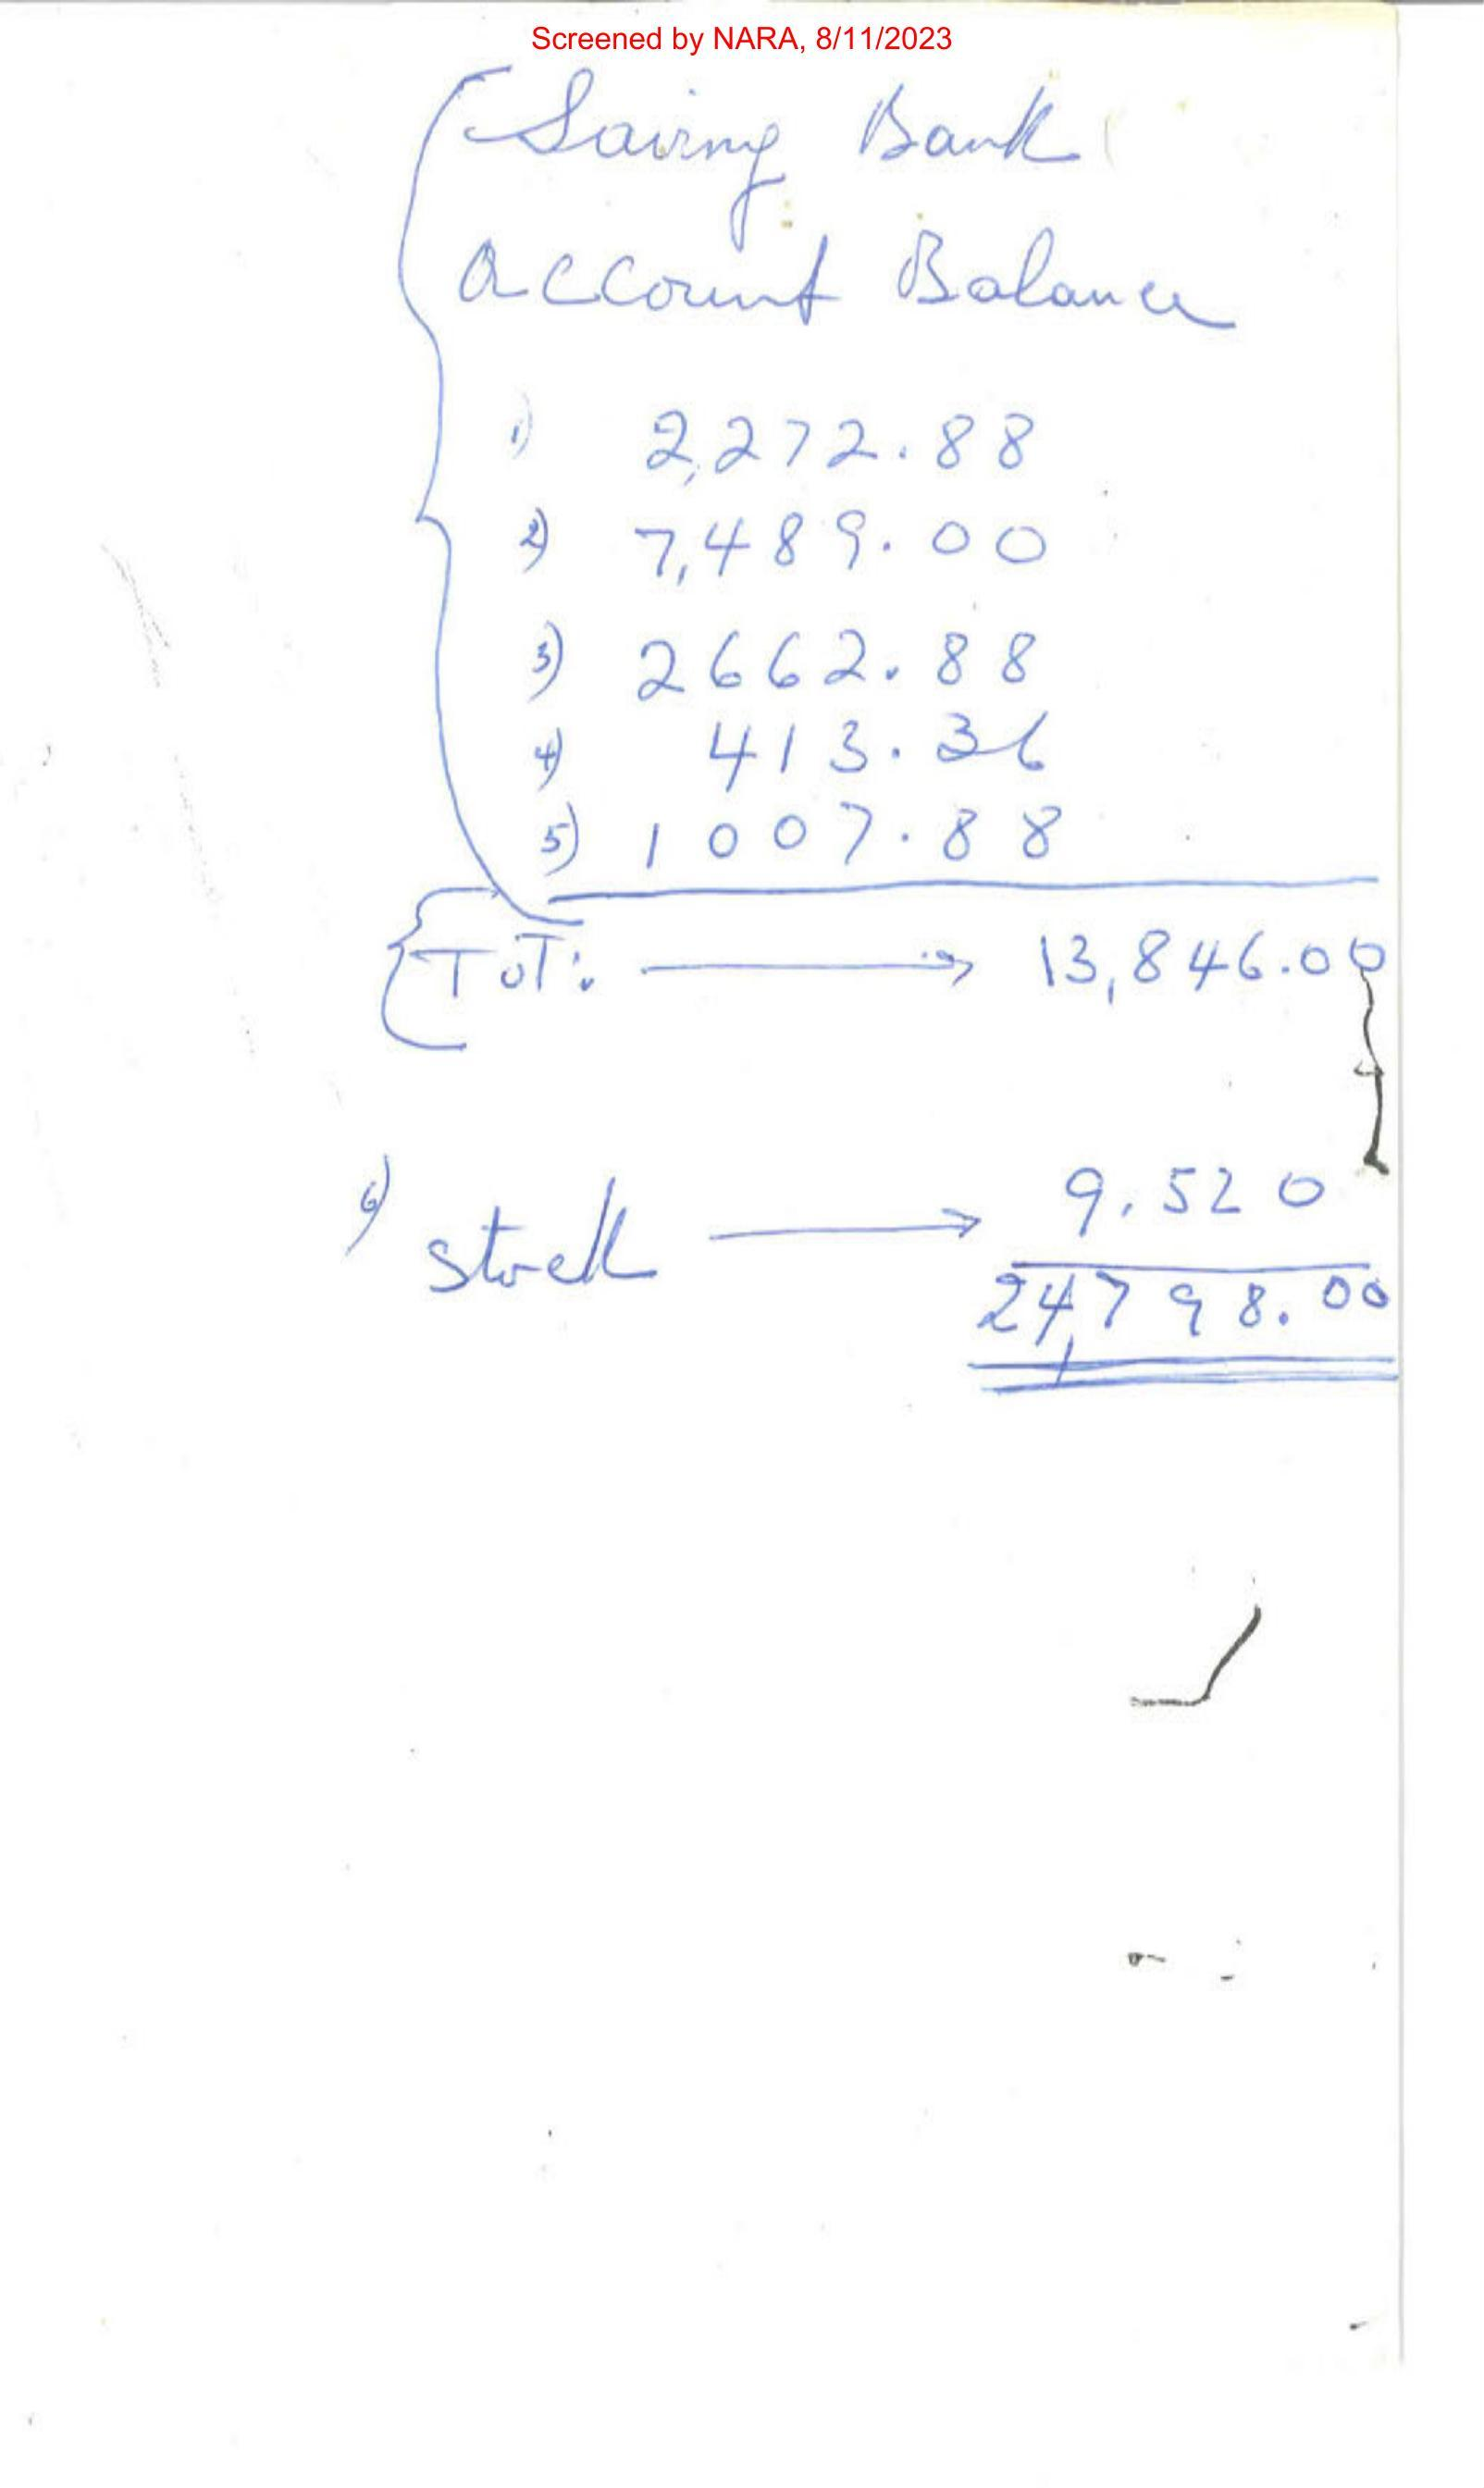 Screened by NARA, 8/11/2023
Saving Bank
Account Balance
1) 2,272.88
2) 7,489.00
3) 2662.88
4) 413.36
5) 1007.88
TOT: → 13,846.00
6) Stock → 9,520
24,798.00